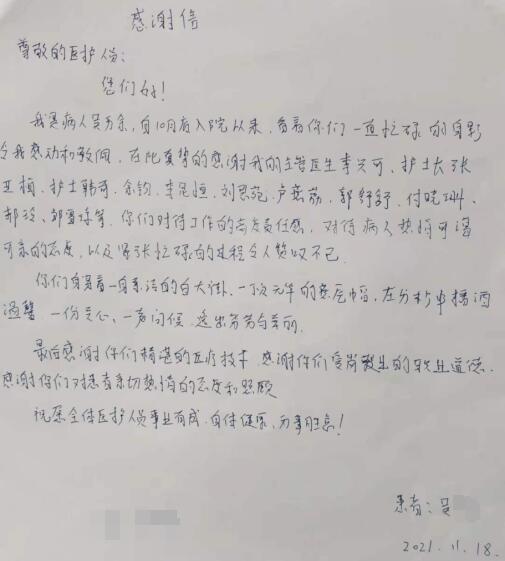 感谢信
尊敬的医护人员:
您们好!
我是病人吴万余,自10月有入院以来,看着你们一直忙碌的身影
令我感动和敬佩,在此真挚的感谢我的主管医生李兴可、护士长张
亚楠、护士韩可、余钧、李昆恒、刘思苑、卢燕荔、郭舒舒、付晓珊、
郝玲、邹雪等等,你们对待工作的高度责任感,对待病人热情可蔼
可亲的态度,以及紧张忙碌的过程令人赞叹不已。
你们身穿着一身素洁的白大褂、一次元年的燕尾帽,在分秒中播洒
温馨,一份爱心、一声问候,透出芬芳与美丽。
最后感谢你们精湛的医疗技术,感谢你们爱岗敬业的职业道德.
感谢你们对患者亲切热情的态度和照顾
祝愿全体医护人员事业有成,身体健康,万事胜意!
患者:吴
2021.11.18.